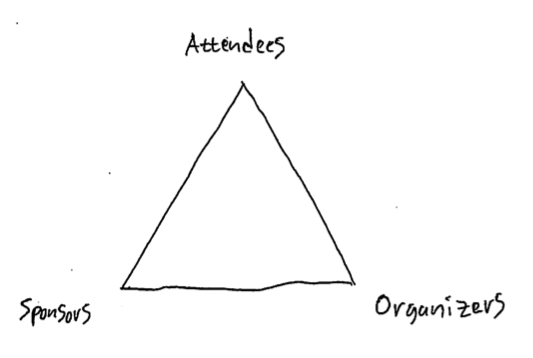 Attendees
Sponsors
Organizers